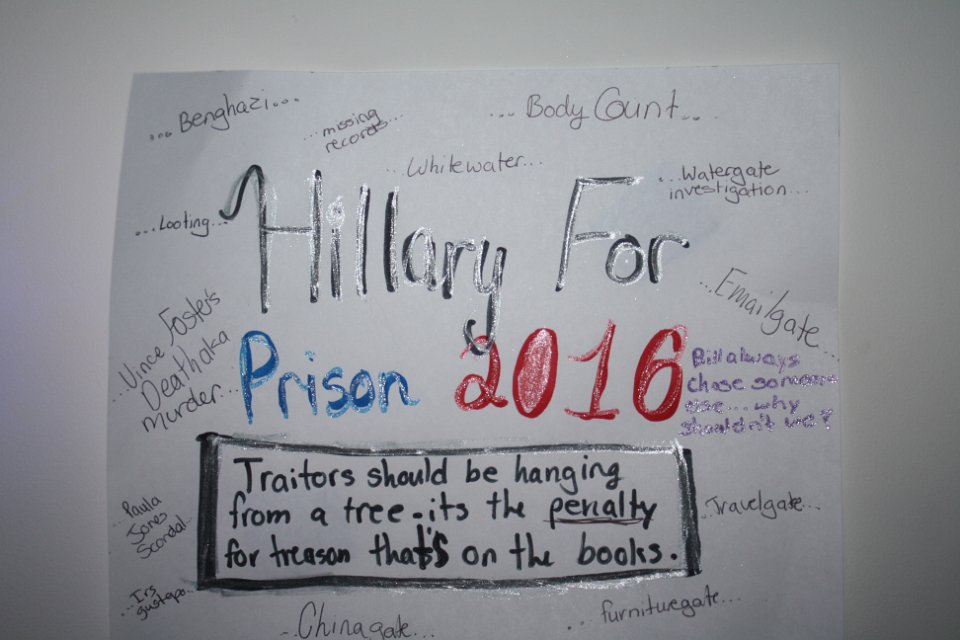 ...Benghazi...
...missing
records...
...Body Count...
...Whitewater...
...Watergate
investigation...
...Looting...
Hillary For
...Emailgate...
...Vince Foster's
Death aka
murder...
Prison 2016
Bill always
chose someone
else...why
shouldn't we?
Traitors should be hanging
from a tree-its the penalty
for treason that's on the books.
...Paula
Jones
Scandal...
...Travelgate...
...Irs
gustapo...
...Chinagate...
...furnituregate...